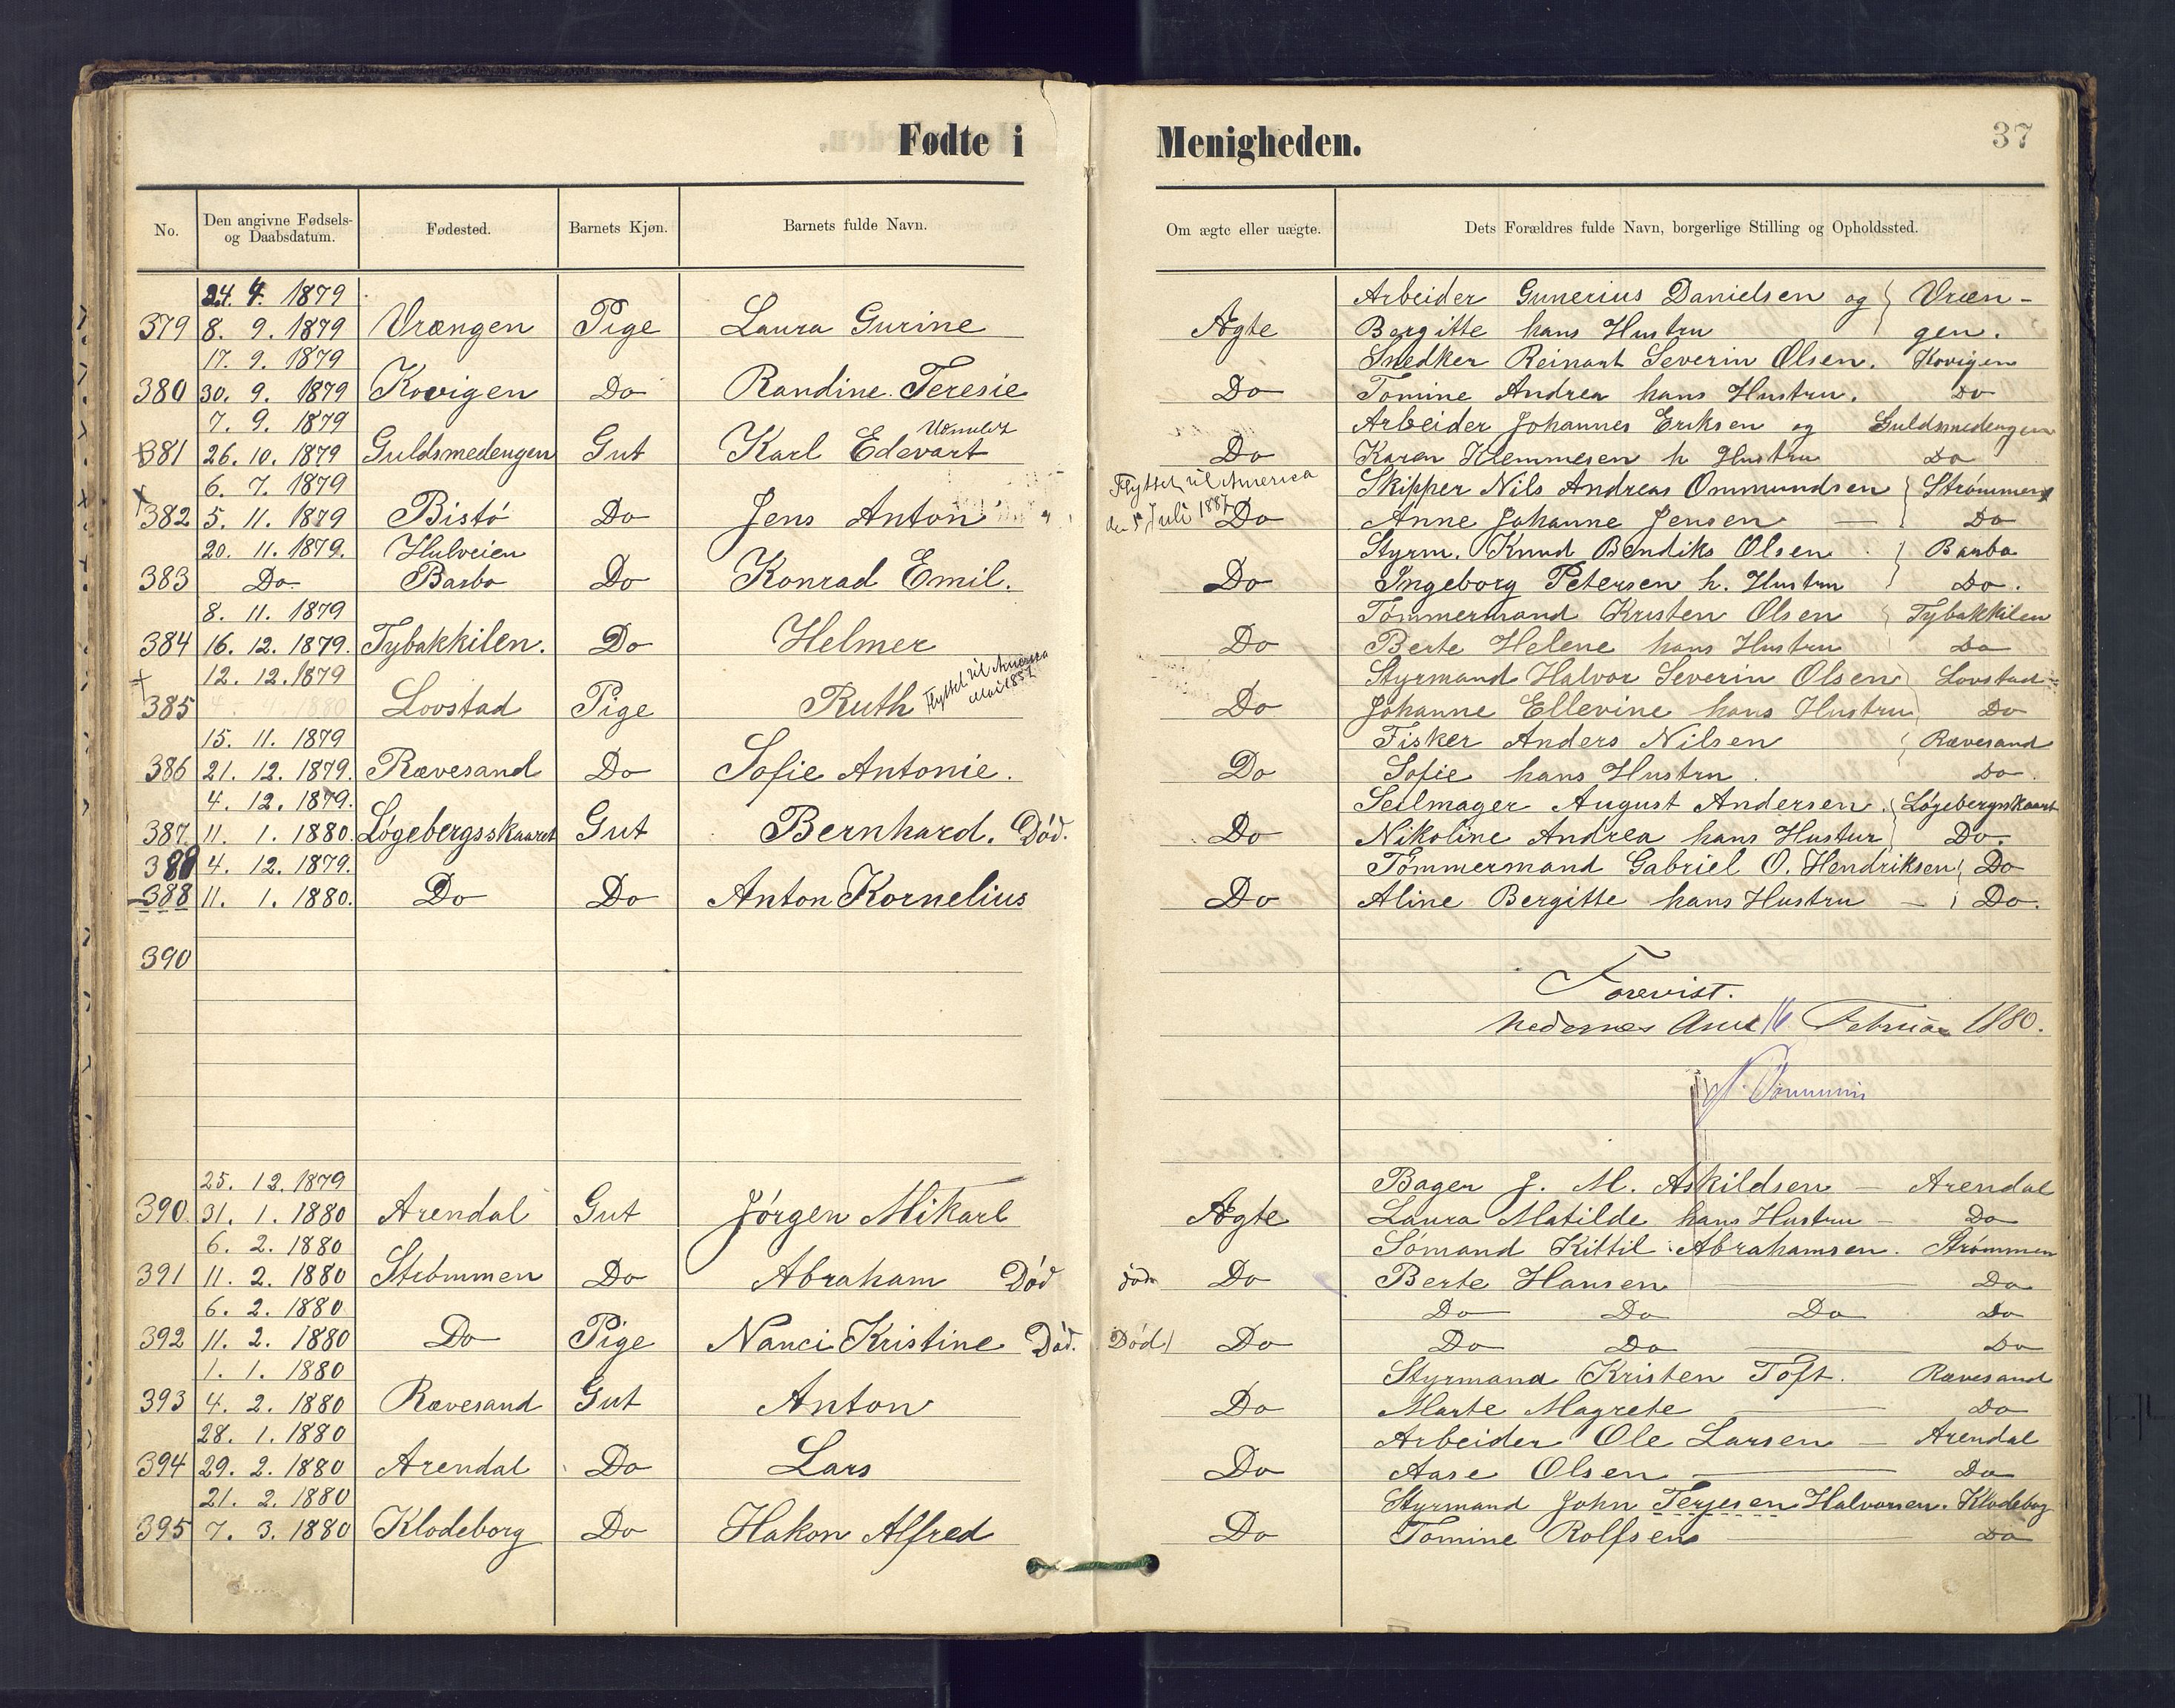 Fødte i Menigheden.
37
No. | Den angivne Fødsels- og Daabsdatum. | Fødested. | Barnets Kjøn. | Barnets fulde Navn. | Om ægte eller uægte. | Dets Forældres fulde Navn, borgerlige Stilling og Opholdssted.
24. 4. 1879 | Arbeider Gunerius Danielsen og | Vræn-
379 | 8. 9. 1879 | Vrængen | Pige | Laura Gurine | Ægte | Bergitte hans Hustru | gen.
17. 9. 1879 | Snedker Reinart Severin Olsen. | Kovigen
380 | 30. 9. 1879 | Kovigen | Do | Randine Teresie | Do | Tomine Andrea hans Hustru. | Do
7. 9. 1879 | Udmeldt | Arbeider Johannes Eriksen og | Guldsmedengen
381 | 26. 10. 1879 | Guldsmedengen | Gut | Karl Edevart | Do | Karen Klemmesen h Hustru | Do
6. 7. 1879 | Flyttet til America | Skipper Nils Andreas Ommundsen | Strømmen
382 | 5. 11. 1879 | Bistö | Do | Jens Anton | den 5 Juli 1887 | Do | Anne Johanne Jensen — | Do
20. 11. 1879. | Hulveien | Styrm. Knud Bendiks Olsen | Barbo
383 | Do | Barbo | Do | Konrad Emil. | Do | Ingeborg Petersen h. Hustru | Do.
8. 11. 1879 | Tømmermand Kristen Olsen | Tybakkilen
384 | 16. 12. 1879. | Tybakkilen. | Do | Helmer | Do | Berte Helene hans Hustru | Do
12. 12. 1879 | Flyttet til America | Styrmand Halvor Severin Olsen | Lovstad
385 | 4. 4. 1880 | Lovstad | Pige | Ruth | Mai 1887 | Do | Johanne Ellevine hans Hustru | Do
15. 11. 1879 | Fisker Anders Nilsen | Rævesand
386 | 21. 12. 1879. | Rævesand | Do | Sofie Antonie. | Do | Sofie hans Hustru. | Do.
4. 12. 1879. | Seilmager August Andersen. | Løgebergsskaart
387. | 11. 1. 1880. | Løgebergsskaaret | Gut | Bernhard. Död. | Do | Nikoline Andrea hans Hustur | Do.
388 | 4. 12. 1879. | Tømmermand Gabriel O. Hendriksen | Do
388 | 11. 1. 1880. | Do | Do | Anton Kornelius | Do | Aline Bergitte hans Hustru — | Do.
390
Forevist.
Nedernes Amt 16 Februar 1880.
25. 12. 1879 | Bager J. M. Askildsen — | Arendal
390. | 31. 1. 1880 | Arendal | Gut | Jørgen Mikael | Ægte | Laura Matilde hans Hustru — | Do
6. 2. 1880 | Sömand Kittil Abrahamsen. | Strömmen
391 | 11. 2. 1880 | Strömmen | Do | Abraham Död | Do | Berte Hansen — | Do
6. 2. 1880 | Do Do Do | Do
392 | 11. 2. 1880 | Do | Pige | Nanci Kristine Död. | Död | Do | Do Do — | Do
1. 1. 1880 | Styrmand Kristen Toft. | Rævesand
393 | 4. 2. 1880 | Rævesand | Gut | Anton | Do | Marte Magrete — | Do
28. 1. 1880 | Arbeider Ole Larsen — | Arendal
394 | 29. 2. 1880 | Arendal | Do | Lars | Do | Aase Olsen — | Do
21. 2. 1880 | Styrmand John Terjesen Halvorsen. | Klodeborg
395 | 7. 3. 1880 | Klodeborg | Do | Hakon Alfred | Do | Tomine Rolfsens — | Do